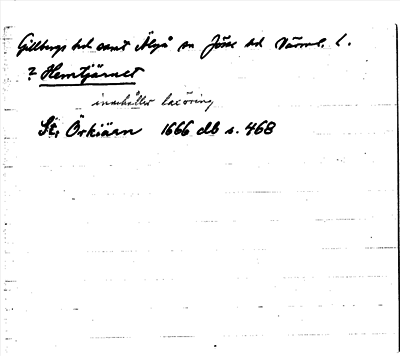 Gillbergs hd samt Älgå sn Jösse hd Värml. l.
? Hemtjärnet
innehåller laxöring
St. Örkiärn 1666 db s. 468